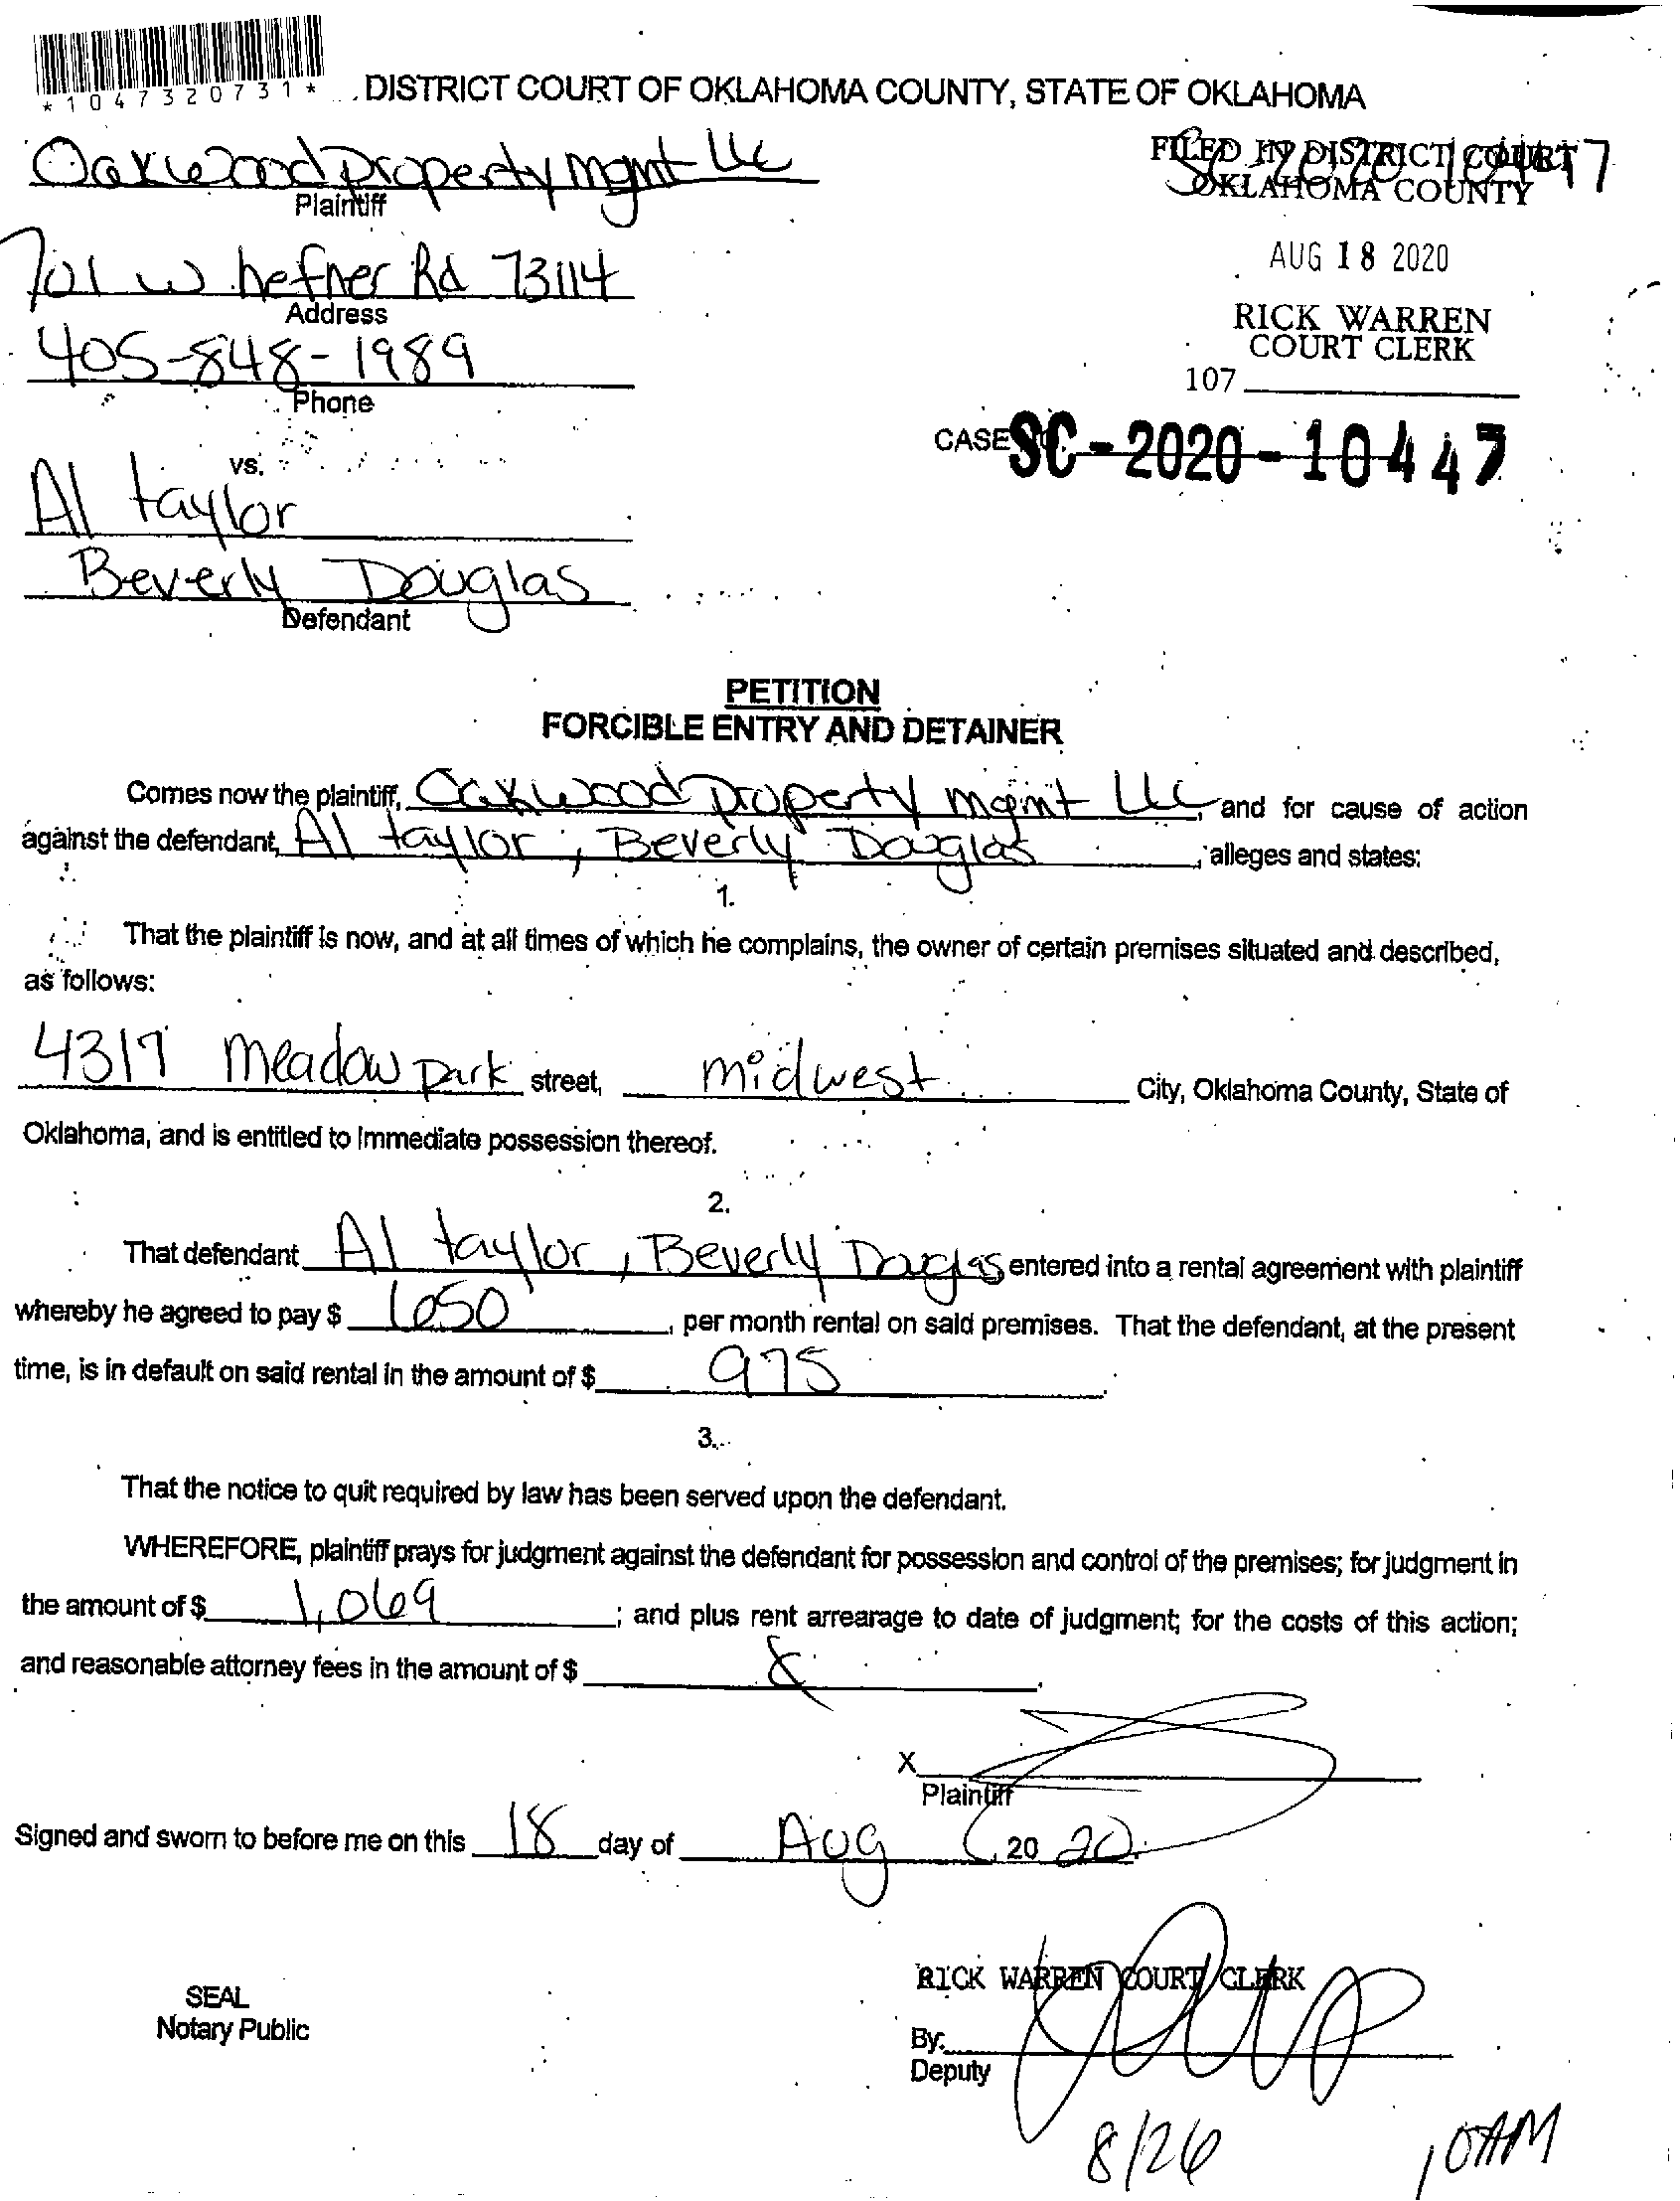 *1047320731*
DISTRICT COURT OF OKLAHOMA COUNTY, STATE OF OKLAHOMA
Oakwood Property Mgmt LLC
Plaintiff
FILED IN DISTRICT COURT
OKLAHOMA COUNTY
SC 2020 10447
701 W hefner Rd 73114
Address
AUG 18 2020
405-848-1989
Phone
RICK WARREN
COURT CLERK
107
CASE SC-2020-10447
vs.
Al taylor
Beverly Douglas
Defendant
PETITION
FORCIBLE ENTRY AND DETAINER
Comes now the plaintiff, Oakwood Property Mgmt LLC, and for cause of action
against the defendant, Al taylor ; Beverly Douglas, alleges and states:
1.
That the plaintiff is now, and at all times of which he complains, the owner of certain premises situated and described,
as follows:
4317 Meadow Park street, midwest City, Oklahoma County, State of
Oklahoma, and is entitled to immediate possession thereof.
2.
That defendant Al taylor, Beverly Douglas entered into a rental agreement with plaintiff
whereby he agreed to pay $ 1050, per month rental on said premises. That the defendant, at the present
time, is in default on said rental in the amount of $ 975.
3.
That the notice to quit required by law has been served upon the defendant.
WHEREFORE, plaintiff prays for judgment against the defendant for possession and control of the premises; for judgment in
the amount of $ 1,069; and plus rent arrearage to date of judgment; for the costs of this action;
and reasonable attorney fees in the amount of $
X
Plaintiff
Signed and sworn to before me on this 18 day of Aug, 20 20.
RICK WARREN COURT CLERK
SEAL
Notary Public
By:
Deputy
8/26 10AM